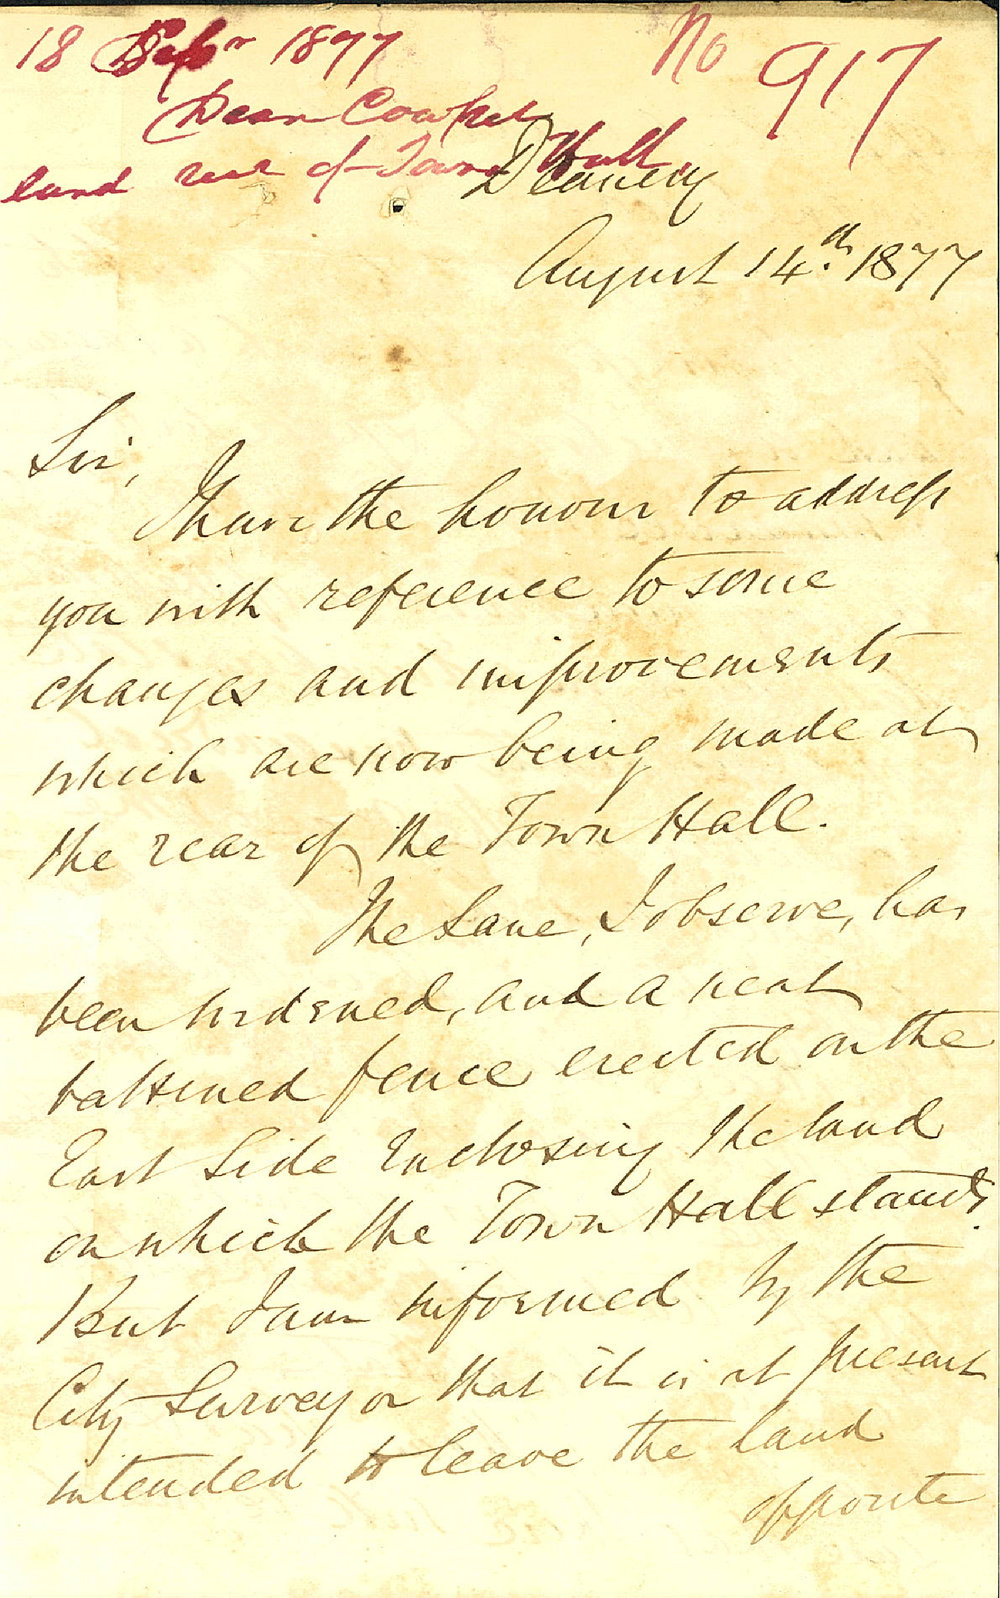 18 Sepbr 1877
No 917
Dean Cowper
land rear of Town Hall
Deanery
August 14th. 1877
Sir,
I have the honour to address
you with reference to some
changes and improvements
which are now being made at
the rear of the Town Hall.
The Lane, I observe, has
been widened, and a neat
battened fence erected on the
East Side enclosing the land
on which the Town Hall stands.
But I am informed by the
City Surveyor that it is at present
intended to leave the land
opposite